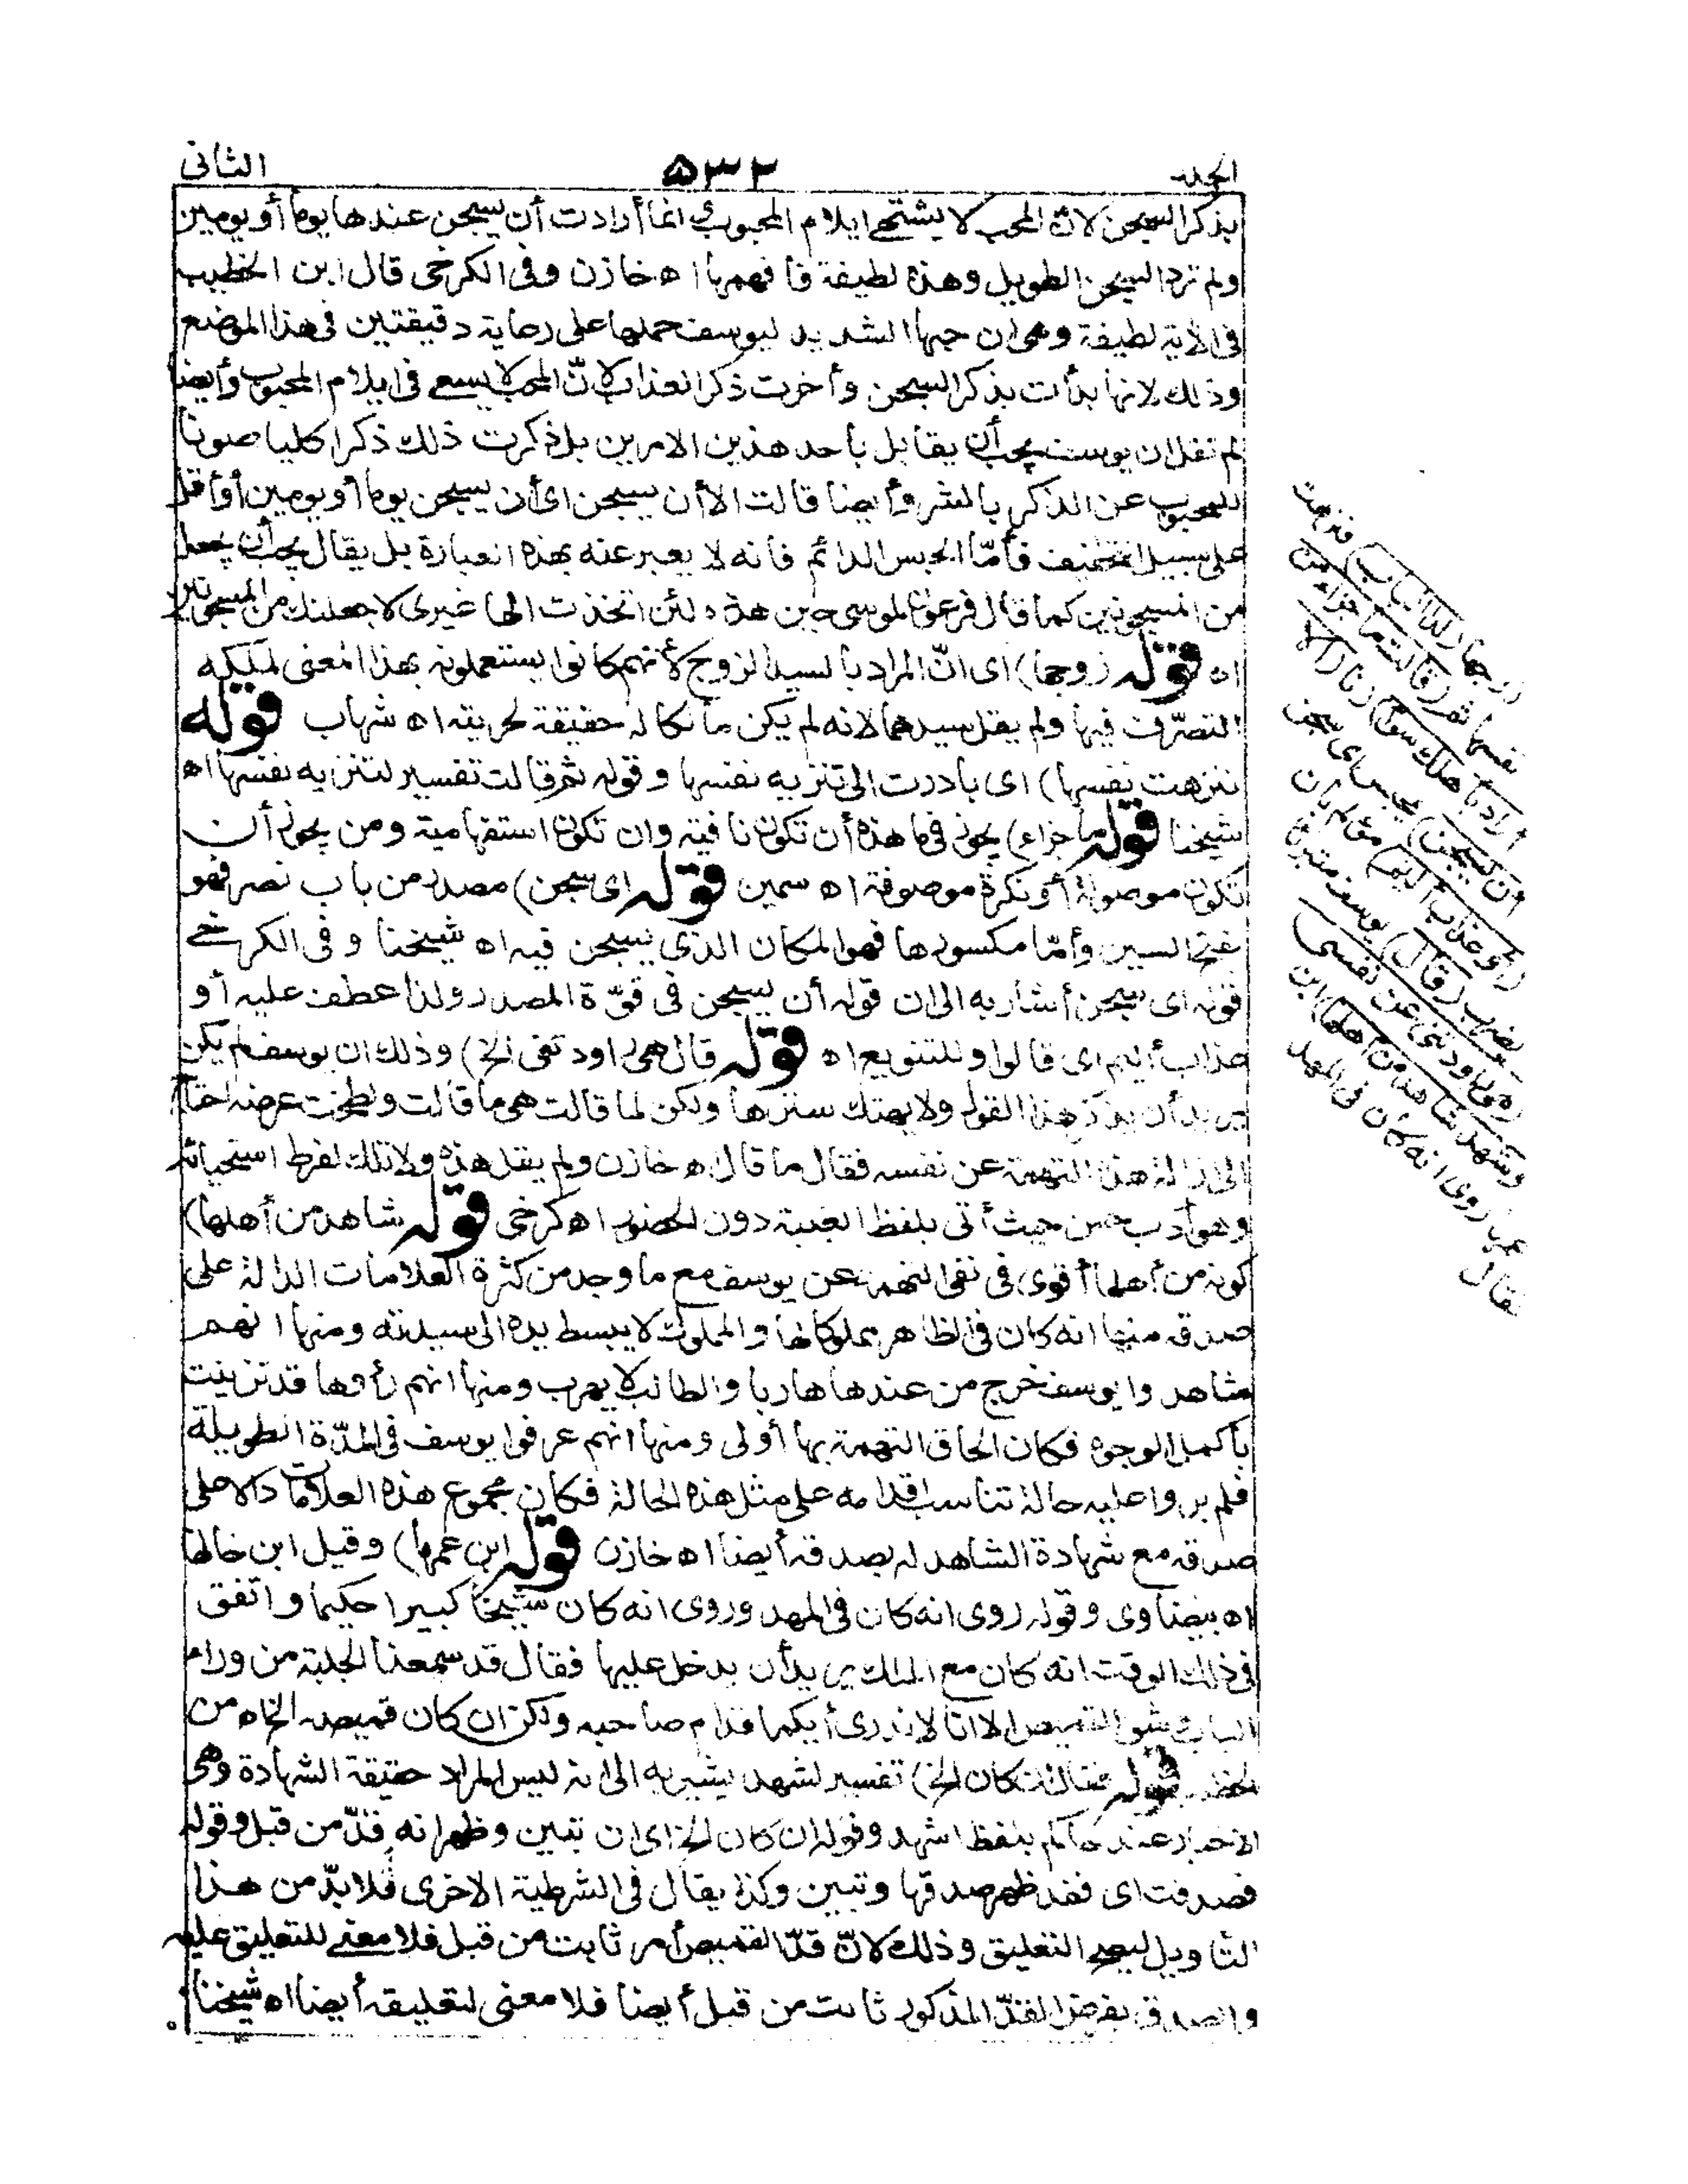 الجلد ٥٣٢ الثانى
بذكر السجن لانّ المحب لا يشتهى ايلام المحبوب انما أرادت أن يسجن عندها يوما أو يومين
ولم ترد السجن الطويل وهذه لطيفة فافهمها اه خازن وفى الكرخى قال ابن الخطيب
فى الاية لطيفة وهى ان حبها الشديد ليوسف حملها على رعاية دقيقتين فى هذا الموضع
وذلك لانها بدأت بذكر السجن وأخرت ذكر العذاب لانّ المحب لا يسعى فى ايلام المحبوب وأيضا
لم تقل ان يوسف يجب أن يقابل بأحد هذين الامرين بل ذكرت ذلك ذكرا كليا صونا
للمحبوب عن الذكر بالشر وأيضا قالت الا أن يسجن اى أن يسجن يوما أو يومين أو أقل
على سبيل التخفيف فأمّا الحبس الدائم فانه لا يعبر عنه بهذه العبارة بل يقال يجب أن يجعل
من المسجونين كما قال فرعون لموسى حين هدده لئن اتخذت الها غيرى لاجعلنك من المسجونين
اه قوله زوجها) اى انّ المراد بالسيد الزوج لأنهم كانوا يستعملونه بهذا المعنى لملكه
التصرّف فيها ولم يقل سيدهما لانه لم يكن مالكا له حقيقة لحريته اه شهاب قوله
فنزهت نفسها) اى بادرت الى تنزيه نفسها وقوله ثم قالت تفسير لتنزيه نفسها اه
شيخنا قوله ما جزاء) يجوز فى ما هذه أن تكون نافية وان تكون استفهامية ومن يجوز أن
تكون موصولة أو نكرة موصوفة اه سمين قوله اى سجن) مصدر من باب نصر فهو
بفتح السين وأمّا مكسورها فهو المكان الذى يسجن فيه اه شيخنا وفى الكرخى
قوله اى سجن أشار به الى ان قوله أن يسجن فى قوّة المصدر ولذا عطف عليه أو
عذاب أليم اى قالوا وللتنويع اه قوله قال هى راودتنى الخ) وذلك ان يوسف لم يكن
يريد أن يذكر هذا القول ولا يهتك سترها ولكن لما قالت هى ما قالت ولطخت عرضه احتاج
الى ازالة هذه التهمة عن نفسه فقال ما قال اه خازن ولم يقل هذه ولا تلك لفرط استحيائه
وهو أدب حسن حيث أتى بلفظ الغيبة دون الحضور اه كرخى قوله شاهد من أهلها)
كونه من أهلها أقوى فى نفى التهمة عن يوسف مع ما وجد من كثرة العلامات الدالة على
صدقه منها انه كان فى الظاهر مملوكا لها والمملوك لا يبسط يده الى سيدته ومنها انهم
شاهدوا يوسف خرج من عندها هاربا والطالب لا يهرب ومنها انهم رأوها قد تزينت
بأكمل الوجوه فكان الحاق التهمة بها أولى ومنها انهم عرفوا يوسف فى المدّة الطويلة
فلم يروا عليه حالة تناسب اقدامه على مثل هذه الحالة فكان مجموع هذه العلامات دالا على
صدقه مع شهادة الشاهد له بصدقه أيضا اه خازن قوله ابن عمها) وقيل ابن خالها
اه بيضاوى وقوله روى انه كان فى المهد وروى انه كان شيخا كبيرا حكيما واتفق
فى ذلك الوقت انه كان مع الملك يريد أن يدخل عليها فقال قد سمعنا الجلبة من وراء
الباب وشق القميص الا انا لا ندرى أيكما قدام صاحبه ولكن ان كان قميصه الخ اه من
الخطيب قوله فقال ان كان الخ) تفسير لشهد يشير به الى انه ليس المراد حقيقة الشهادة وهى
الاخبار عند حاكم بلفظ اشهد وقوله ان كان الخ اى ان تبين وظهر انه قدّ من قبل وقوله
فصدقت اى فقد ظهر صدقها وتبين وكذا يقال فى الشرطية الاخرى فلا بدّ من هذا
التأويل ليصح التعليق وذلك لانّ قدّ القميص أمر ثابت من قبل فلا معنى للتعليق عليه
والصدق بفرض القدّ المذكور ثابت من قبل أيضا فلا معنى لتعليقه أيضا اه شيخنا
زوجها (لدا الباب) فنزهت
نفسها ثم (قالت ما جزاء من
أراد بأهلك سوأ) زنا (الا
أن يسجن) يحبس اى سجن
(أو عذاب أليم) مؤلم بأن
يضرب (قال) يوسف متبرئا
(هى راودتنى عن نفسى
وشهد شاهد من أهلها) ابن
عمها روى انه كان فى المهد
فقال